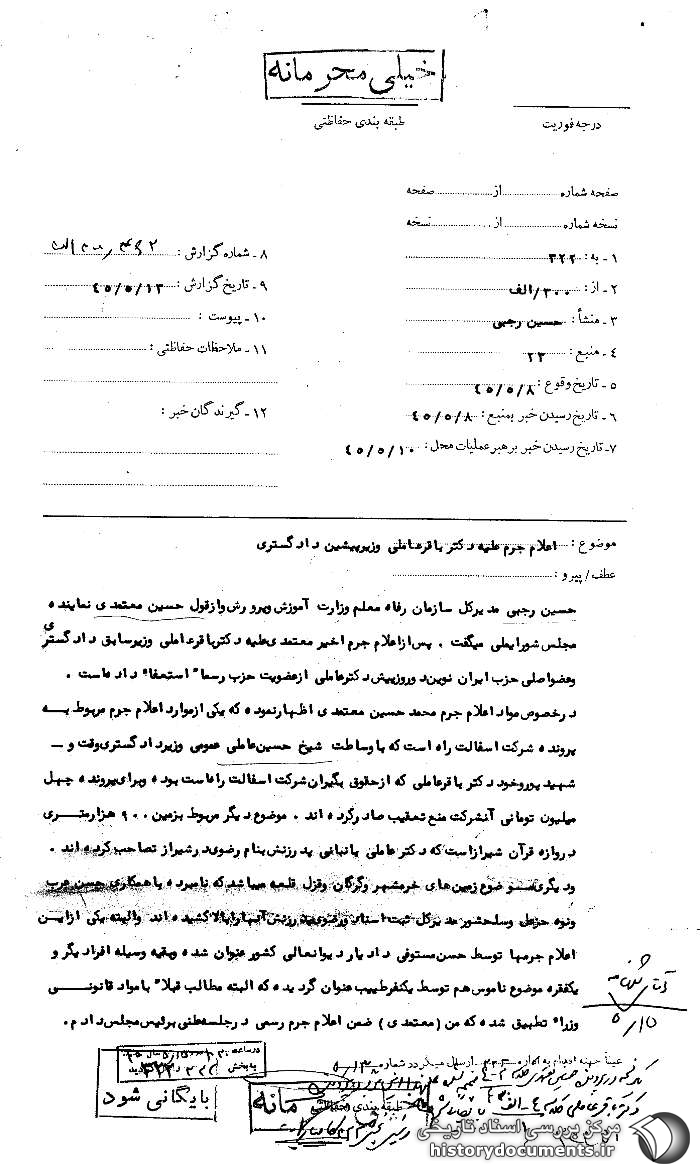 خیلی محرمانه
طبقه بندی حفاظتی
درجه فوریت
صفحه شماره از صفحه
نسخه شماره از نسخه
۱ـ به: ۳۲۲
۲ـ از: ۳۰۰/الف
۳ـ منشأ: حسین رجبی
۴ـ منبع: ۲۳
۵ـ تاریخ وقوع: ۴۵/۵/۸
۶ـ تاریخ رسیدن خبر بمنبع: ۴۵/۵/۸
۷ـ تاریخ رسیدن خبر برهبر عملیات محل: ۴۵/۵/۱۰
۸ـ شماره گزارش:
۹ـ تاریخ گزارش: ۴۵/۵/۱۳
۱۰ـ پیوست:
۱۱ـ ملاحظات حفاظتی:
۱۲ـ گیرندگان خبر:
موضوع: اعلام جرم علیه دکتر باقر عاملی وزیر پیشین دادگستری
عطف/پیرو:
حسین رجبی مدیرکل سازمان رفاه معلم وزارت آموزش وپرورش وازقول حسین معتمدی نماینده
مجلس شورایملی میگفت. پس ازاعلام جرم اخیر معتمدی علیه دکترباقرعاملی وزیرسابق دادگستری
وعضواصلی حزب ایران نوین دوروز پیش دکترعاملی ازعضویت حزب رسما" استعفا" داده است.
درخصوص مواد اعلام جرم محمد حسین معتمدی اظهارنموده که یکی ازموارد اعلام جرم مربوط به
پرونده شرکت اسفالت راه است که با وساطت شیخ حسین عاملی عموی وزیردادگستری وقت و ـ
شهید پورو خود دکتر باقرعاملی که ازحقوق بگیران شرکت اسفالت راه است بوده وبرای پرونده چهل
میلیون تومانی آنشرکت منع تعقیب صادرکرده اند. موضوع دیگر مربوط بزمین ۹۰۰ هزارمتری
دروازه قرآن شیرازاست که دکترعاملی با تبانی پدرزنش بنام رضوی درشیراز تصاحب کرده اند.
ودیگری موضوع زمین های خرمشهر وگرگان وقزل قلعه میباشد که نامبرده با همکاری حسن عرب
ونوه خزعل وسلحشور مدیرکل ثبت اسناد ورضوی پدرزنش آنهارا بالا کشیده اند والبته یکی ازاین
اعلام جرمها توسط حسن مستوفی دادیار دیوانعالی کشور عنوان شده وبقیه وسیله افراد دیگر و
یکفقره موضوع ناموس هم توسط یکنفرطبیب عنوان گردیده که البته مطالب قبلا" با مواد قانونی
وزراء تطبیق شده که من (معتمدی) ضمن اعلام جرم رسمی در جلسه علنی برئیس مجلس دادم.
عیناً جهة اقدام به اداره ارسال میگردد شماره
بایگانی شود
طبقه بندی حفاظتی
مرکز بررسی اسناد تاریخی
historydocuments.ir